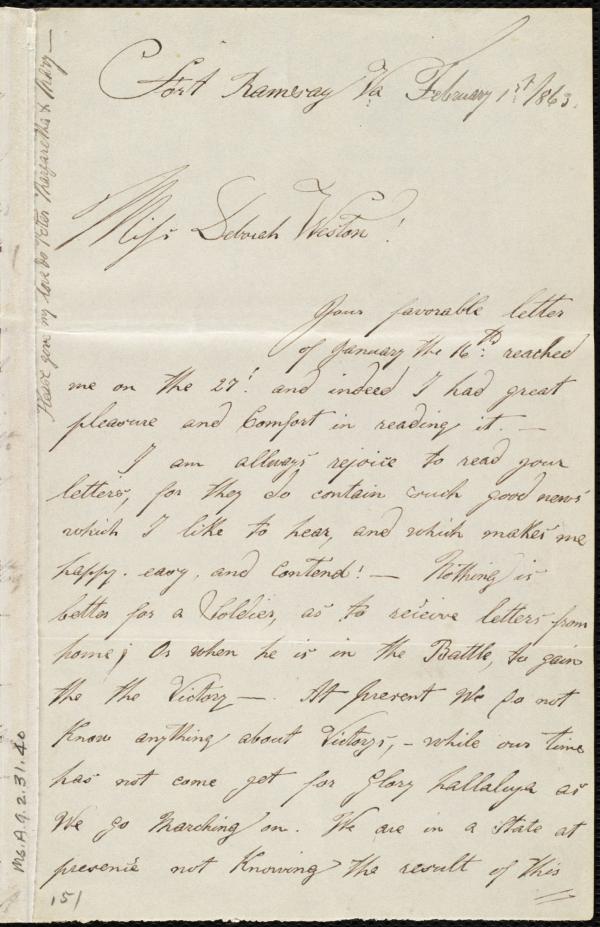 Fort Rameray Va February 1st 1863.
Miss Deborah Weston!
Your favorable letter
of January the 16th reached
me on the 27! and indeed I had great
pleasure and Comfort in reading it. —
I am allways rejoice to read your
letters, for they do contain such good news
which I like to hear, and which makes me
happy. easy, and Contend! — Nothing is
better for a Soldier, as to reicive letters from
home; Or when he is in the Battle, to gain
the the Victory —. At present We do not
Know anything about Victorys, - while our time
has not come yet for Glory hallaluya as
We go Marching on. We are in a State at
presence not Knowing the result of this
Please give my love to Peter Margaretha & Mary —
Ms.A.9.2.31.40
151